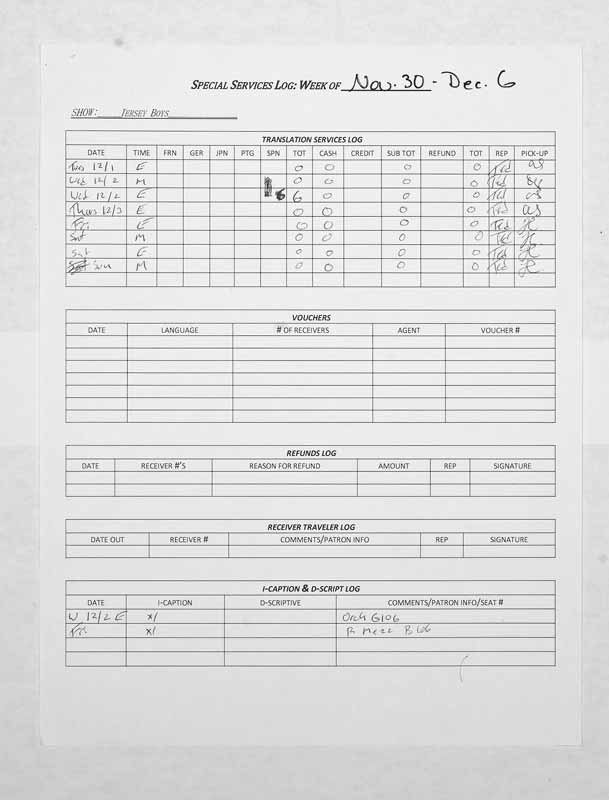 SPECIAL SERVICES LOG: WEEK OF Nov. 30 - Dec. 6
SHOW: JERSEY BOYS
TRANSLATION SERVICES LOG
DATE TIME FRN GER JPN PTG SPN TOT CASH CREDIT SUB TOT REFUND TOT REP PICK-UP
Tues 12/1 E 0 0 0 0 Ted as
Wed 12/2 M 0 0 0 0 Ted
Wed 12/2 E 6 6 0 0 0 Ted as
Thurs 12/3 E 0 0 0 0 Ted as
Fri. E 0 0 0 0 Ted
Sat M 0 0 0 0 Ted
Sat E 0 0 0 0 Ted
Sun M 0 0 0 0 Ted
VOUCHERS
DATE LANGUAGE # OF RECEIVERS AGENT VOUCHER #
REFUNDS LOG
DATE RECEIVER #'S REASON FOR REFUND AMOUNT REP SIGNATURE
RECEIVER TRAVELER LOG
DATE OUT RECEIVER # COMMENTS/PATRON INFO REP SIGNATURE
I-CAPTION & D-SCRIPT LOG
DATE I-CAPTION D-SCRIPTIVE COMMENTS/PATRON INFO/SEAT #
W 12/2 E x/ Orch G106
Fri x/ R Mezz B106